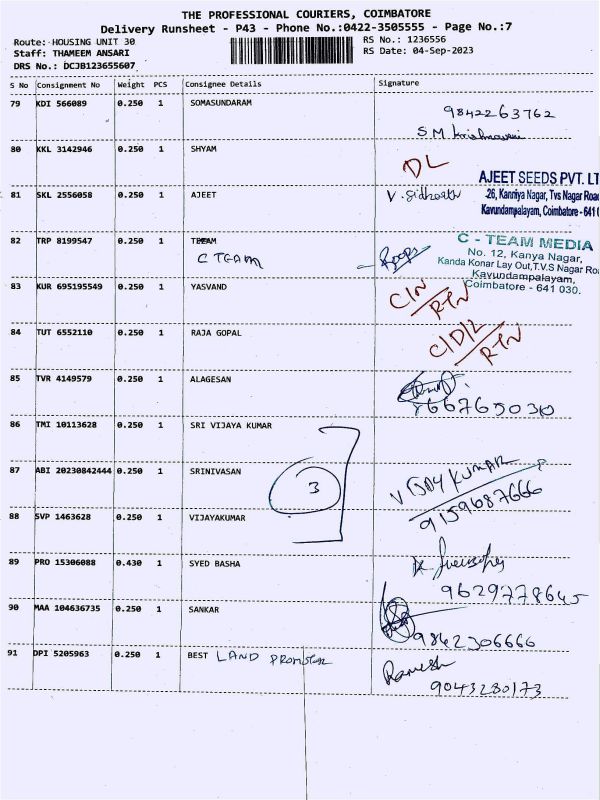 THE PROFESSIONAL COURIERS, COIMBATORE
Delivery Runsheet - P43 - Phone No.:0422-3505555 - Page No.:7
Route: HOUSING UNIT 30 RS No.: 1236556
Staff: THAMEEM ANSARI RS Date: 04-Sep-2023
DRS No.: DCJB123655607
S No Consignment No Weight PCS Consignee Details Signature
79 KDI 566089 0.250 1 SOMASUNDARAM 9842263762
S M
80 KKL 3142946 0.250 1 SHYAM DL
AJEET SEEDS PVT. LT
81 SKL 2556058 0.250 1 AJEET V. Sidharth 26, Kanniya Nagar, Tvs Nagar Road
Kavundampalayam, Coimbatore - 641 0
82 TRP 8199547 0.250 1 TEAM C - TEAM MEDIA
C TEAM No. 12, Kanya Nagar,
Kanda Konar Lay Out,T.V.S Nagar Ro
Kavundampalayam,
83 KUR 695195549 0.250 1 YASVAND C/N Coimbatore - 641 030.
RTN
84 TUT 6552110 0.250 1 RAJA GOPAL C/D/2
RTN
85 TVR 4149579 0.250 1 ALAGESAN
8667650310
86 TMI 10113628 0.250 1 SRI VIJAYA KUMAR
87 ABI 20230842444 0.250 1 SRINIVASAN 3 VIJAY KUMAR
9159687666
88 SVP 1463628 0.250 1 VIJAYAKUMAR
89 PRO 15306088 0.430 1 SYED BASHA
9629778645
90 MAA 104636735 0.250 1 SANKAR
9842306666
91 DPI 5205963 0.250 1 BEST LAND PROMOTER Ramesh
9043280173